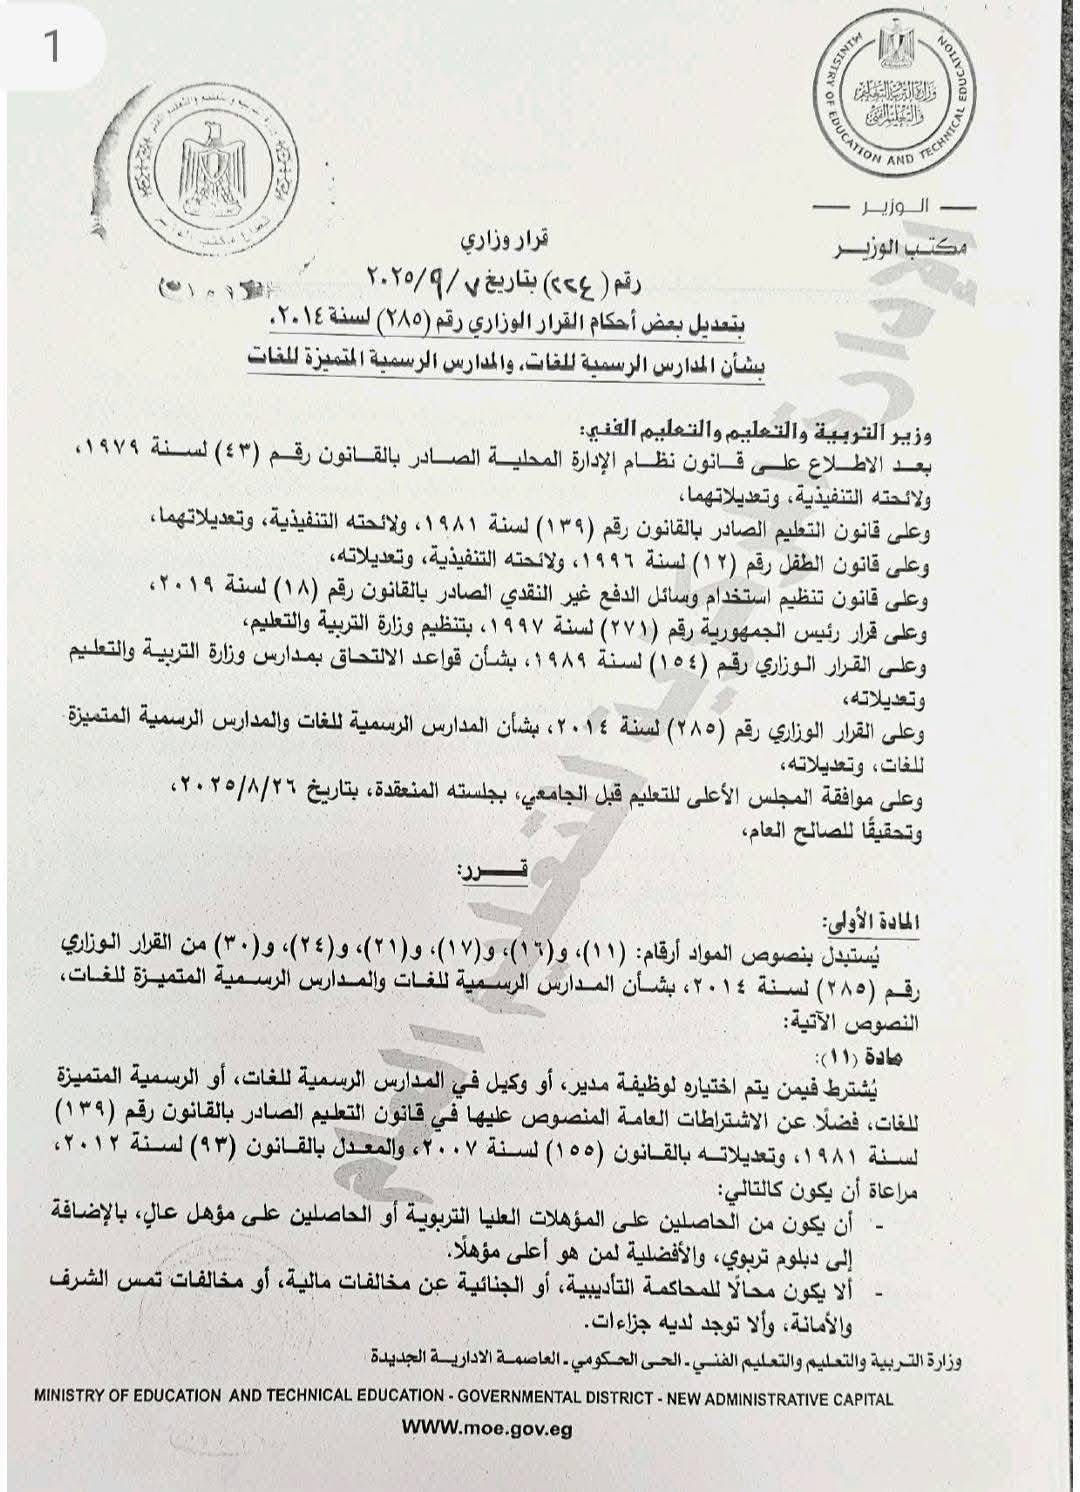 1
MINISTRY OF EDUCATION AND TECHNICAL EDUCATION
وزارة التربية والتعليم
والتعليم الفني
الوزير
مكتب الوزير
قرار وزاري
رقم (٢٢٤) بتاريخ ٧/ ٩/ ٢٠٢٥
بتعديل بعض أحكام القرار الوزاري رقم (٢٨٥) لسنة ٢٠١٤،
بشأن المدارس الرسمية للغات، والمدارس الرسمية المتميزة للغات
وزير التربية والتعليم والتعليم الفني:
بعد الاطلاع على قانون نظام الإدارة المحلية الصادر بالقانون رقم (٤٣) لسنة ١٩٧٩،
ولائحته التنفيذية، وتعديلاتهما،
وعلى قانون التعليم الصادر بالقانون رقم (١٣٩) لسنة ١٩٨١، ولائحته التنفيذية، وتعديلاتهما،
وعلى قانون الطفل رقم (١٢) لسنة ١٩٩٦، ولائحته التنفيذية، وتعديلاته،
وعلى قانون تنظيم استخدام وسائل الدفع غير النقدي الصادر بالقانون رقم (١٨) لسنة ٢٠١٩،
وعلى قرار رئيس الجمهورية رقم (٢٧١) لسنة ١٩٩٧، بتنظيم وزارة التربية والتعليم،
وعلى القرار الوزاري رقم (١٥٤) لسنة ١٩٨٩، بشأن قواعد الالتحاق بمدارس وزارة التربية والتعليم
وتعديلاته،
وعلى القرار الوزاري رقم (٢٨٥) لسنة ٢٠١٤، بشأن المدارس الرسمية للغات والمدارس الرسمية المتميزة
للغات، وتعديلاته،
وعلى موافقة المجلس الأعلى للتعليم قبل الجامعي، بجلسته المنعقدة، بتاريخ ٢٠٢٥/٨/٢٦،
وتحقيقًا للصالح العام،
قـــرر:
المادة الأولى:
يُستبدل بنصوص المواد أرقام: (١١)، و(١٦)، و(١٧)، و(٢١)، و(٢٤)، و(٣٠) من القرار الوزاري
رقم (٢٨٥) لسنة ٢٠١٤، بشأن المدارس الرسمية للغات والمدارس الرسمية المتميزة للغات،
النصوص الآتية:
مادة (١١):
يُشترط فيمن يتم اختياره لوظيفة مدير، أو وكيل في المدارس الرسمية للغات، أو الرسمية المتميزة
للغات، فضلًا عن الاشتراطات العامة المنصوص عليها في قانون التعليم الصادر بالقانون رقم (١٣٩)
لسنة ١٩٨١، وتعديلاته بالقانون (١٥٥) لسنة ٢٠٠٧، والمعدل بالقانون (٩٣) لسنة ٢٠١٢،
مراعاة أن يكون كالتالي:
- أن يكون من الحاصلين على المؤهلات العليا التربوية أو الحاصلين على مؤهل عالٍ، بالإضافة
إلى دبلوم تربوي، والأفضلية لمن هو أعلى مؤهلًا.
- ألا يكون محالًا للمحاكمة التأديبية، أو الجنائية عن مخالفات مالية، أو مخالفات تمس الشرف
والأمانة، وألا توجد لديه جزاءات.
وزارة التربية والتعليم والتعليم الفني - الحى الحكومي - العاصمة الادارية الجديدة
MINISTRY OF EDUCATION AND TECHNICAL EDUCATION - GOVERNMENTAL DISTRICT - NEW ADMINISTRATIVE CAPITAL
WWW.moe.gov.eg